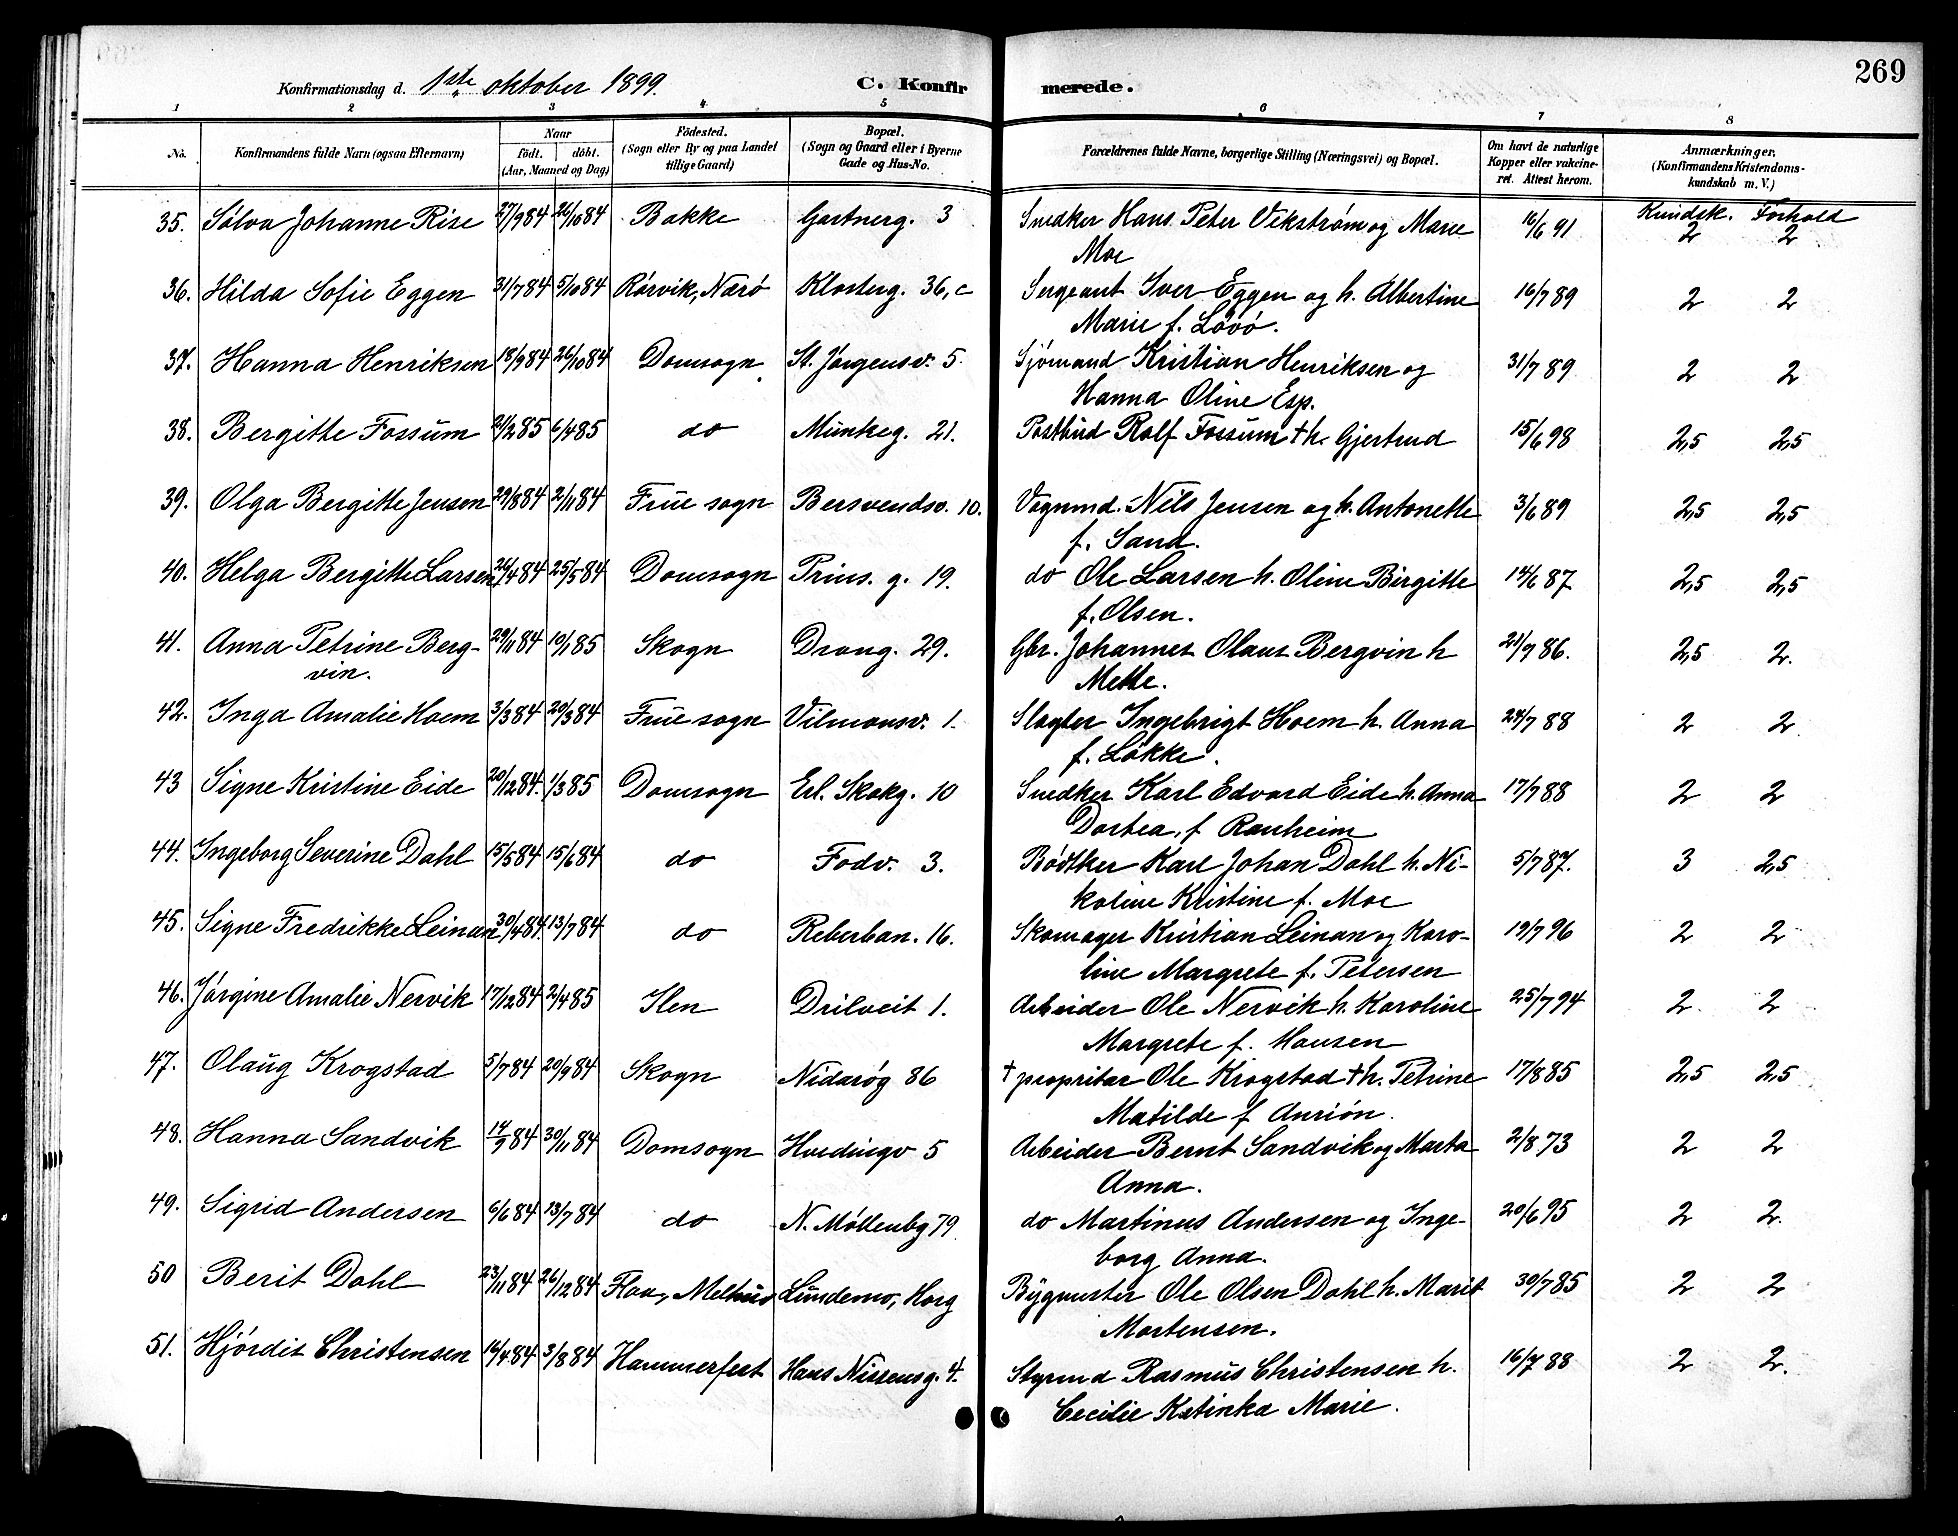 269
Konfirmationsdag d. 1ste oktober 1899. C. Konfirmerede.
1 2 3 4 5 6 7 8
No. Konfirmandens fulde Navn (ogsaa Efternavn) Naar født. døbt. (Aar, Maaned og Dag) Fødested. (Sogn eller By og paa Landet tillige Gaard) Bopæl. (Sogn og Gaard eller i Byerne Gade og Hus-No. Forældrenes fulde Navne, borgerlige Stilling (Næringsvei) og Bopæl. Om havt de naturlige Kopper eller vakcineret. Attest herom. Anmærkninger. (Konfirmandens Kristendomskundskab m. V.)
Kundsk. Forhold
35. Sølva Johanne Rise 27/9 84 26/10 84 Bakke Gartnerg. 3 Snedker Hans Peter Vekstrøm og Marie 16/6 91 2 2
Moe
36. Hilda Sofie Eggen 31/7 84 5/10 84 Rørvik, Nærø Klosterg. 36, c Sergeant Iver Eggen og h. Albertine 16/7 89 2 2
Marie f. Løvø.
37. Hanna Henriksen 18/9 84 26/10 84 Domsogn St. Jørgensv. 5. Sjømand Kristian Henriksen og 31/7 89 2 2
Hanna Oline Esp.
38. Bergitte Fossum 21/2 85 6/4 85 do Munkeg. 21. Postbud Rolf Fossum † h. Gjertrud 15/6 98 2,5 2,5
39. Olga Bergitte Jensen 29/8 84 2/11 84 Frue sogn Bersvendsv. 10. Vognmd. Nils Jensen og h. Antonette 3/6 89 2,5 2,5
f. Sand.
40. Helga Bergitte Larsen 26/4 84 25/5 84 Domsogn Prins. g. 19. do Ole Larsen h. Oline Birgitte 14/6 87 2,5 2,5
f. Olsen.
41. Anna Petrine Berg- 29/11 84 10/1 85 Skogn Drong. 29. Gbr. Johannes Olaus Bergvin h 21/7 86. 2,5 2.
vin. Mette.
42. Inga Amalie Hoem 3/3 84 20/3 84 Frue sogn Vilmansv. 1. Slagter Ingebrigt Hoem h. Anna 24/7 88 2 2
f. Løkke.
43 Signe Kristine Eide 20/12 84. 1/3 85 Domsogn Erl. Skakg. 10 Snedker Karl Edvard Eide h. Anna 17/7 88 2 2
Dortea, f Ranheim
44. Ingeborg Severine Dahl 15/5 84 15/6 84 do Fodv. 3. Bødtker Karl Johan Dahl h. Ni- 5/7 87. 3 2,5
koline Kristine f. Moe
45. Signe Fredrikke Leinan 30/4 84. 13/7 84 do Reberban. 16. Skomager Kristian Leinan og Karo- 19/7 96 2 2
line Margrete f. Petersen
46. Jørgine Amalie Nervik 17/12 84 2/4 85 Ilen Drilveit 1. Arbeider Ole Nervik h. Karoline 25/7 94 2 2
Margrete f. Hansen
47. Olaug Krogstad 5/7 84 20/9 84 Skogn Nidarøg 86 † propritær Ole Krogstad † h. Petrine 17/8 85 2,5 2,5
Matilde f
48. Hanna Sandvik 14/9 84 30/11 84 Domsogn Hvedingv 5 Arbeider Bernt Sandvik og Marta 2/8 73 2 2
Anna.
49. Sigrid Andersen 6/6 84 13/7 84 do N. Møllenbg 79 do Martinus Andersen og Inge- 20/6 95 2 2.
borg Anna.
50 Berit Dahl 23/11 84 26/12 84 Flaa, Melhus Lundemo, Horg Bygmester Ole Olsen Dahl h. Marit 30/7 85 2 2
Mortensen.
51. Hjørdis Christensen 14/4 84 3/8 84 Hammerfest Hans Nissensg. 4. Styrmd Rasmus Christensen h. 16/7 88 2 2.
Cecilie Katinka Marie.